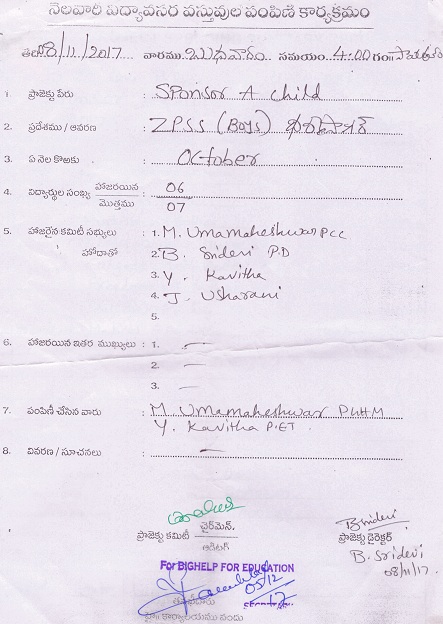 నెలవారి విద్యావసర వస్తువుల పంపిణి కార్యక్రమం
తేది 08/11/2017 వారము బుధవారం సమయం 4:00 గం॥
1. ప్రాజెక్టు పేరు : Sponsor A child
2. ప్రదేశము / ఆవరణ : ZPSS (Boys)
3. ఏ నెల కొఱకు : October
4. విద్యార్థుల సంఖ్య హాజరయిన : 06
మొత్తము 07
5. హాజరైన కమిటీ సభ్యులు : 1. M. Umamaheshwar PCC
హోదాతో 2. B. Sridevi P.D
3. Y. Kavitha
4. J. Usharani
5.
6. హాజరయిన ఇతర ముఖ్యులు : 1. —
2. —
3. —
7. పంపిణీ చేసిన వారు : M. Umamaheshwar PLHM
Y. Kavitha P.ET
8. వివరణ / సూచనలు : —
ప్రాజెక్టు కమిటీ చైర్‌మెన్.
ఆడిటర్
ప్రాజెక్టు డైరెక్టర్
B. Sridevi
08/11/17.
For BIGHELP FOR EDUCATION
05/12